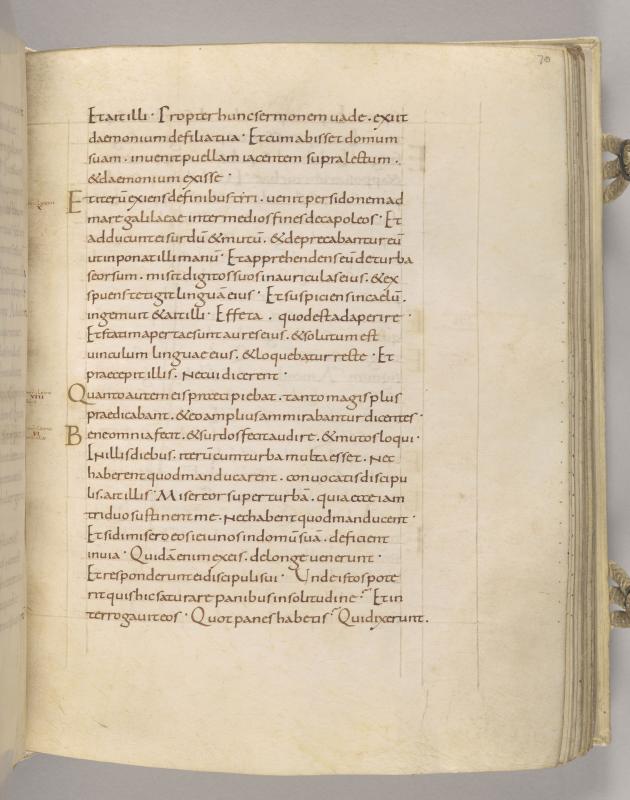 70
Etaitilli· Propter huncsermonem uade. exiit
daemonium defiliatua· Etcumabisset domum
suam. inuenit puellam iacentem supralectum.
&daemonium exisse·
Etiterū exiens definibus tyri. uenit persidonem ad
mare galilaeae inter mediosfines decapoleos· Et
adducuntei surdū &mutū. &deprecabantur eū
utinponat illi manū· Et apprehendens eū deturba
seorsum. misit digitos suos inauriculas eius. &ex
spuens tetigit linguā eius· Et suspiciens incaelū.
ingemuit &aitilli· Effeta. quodest adaperire·
Et statim apertaesunt aures eius. &solutum est
uinculum linguae eius. &loquebatur recte· Et
praecepit illis. Necui dicerent·
Quantoautem eis praecipiebat. tanto magis plus
praedicabant. &eoamplius ammirabantur dicentes·
Beneomnia fecit. &surdos fecit audire. &mutos loqui·
INillis diebus. iterū cum turba multa esset. Nec
haberent quod manducarent. conuocatis discipu
lis. aitillis· Misereor super turbā. quia ecce iam
triduo sustinent me. Nec habent quod manducent·
Et si dimisero eos ieiunos indomū suā. deficient
inuia· Quidā enim ex eis. delonge uenerunt·
Et responderunt ei discipuli sui· Unde istos pote
rit quis hic saturare panibus in solitudine· Et in
terrogauit eos· Quot panes habetis· Qui dixerunt.
VIII
VI